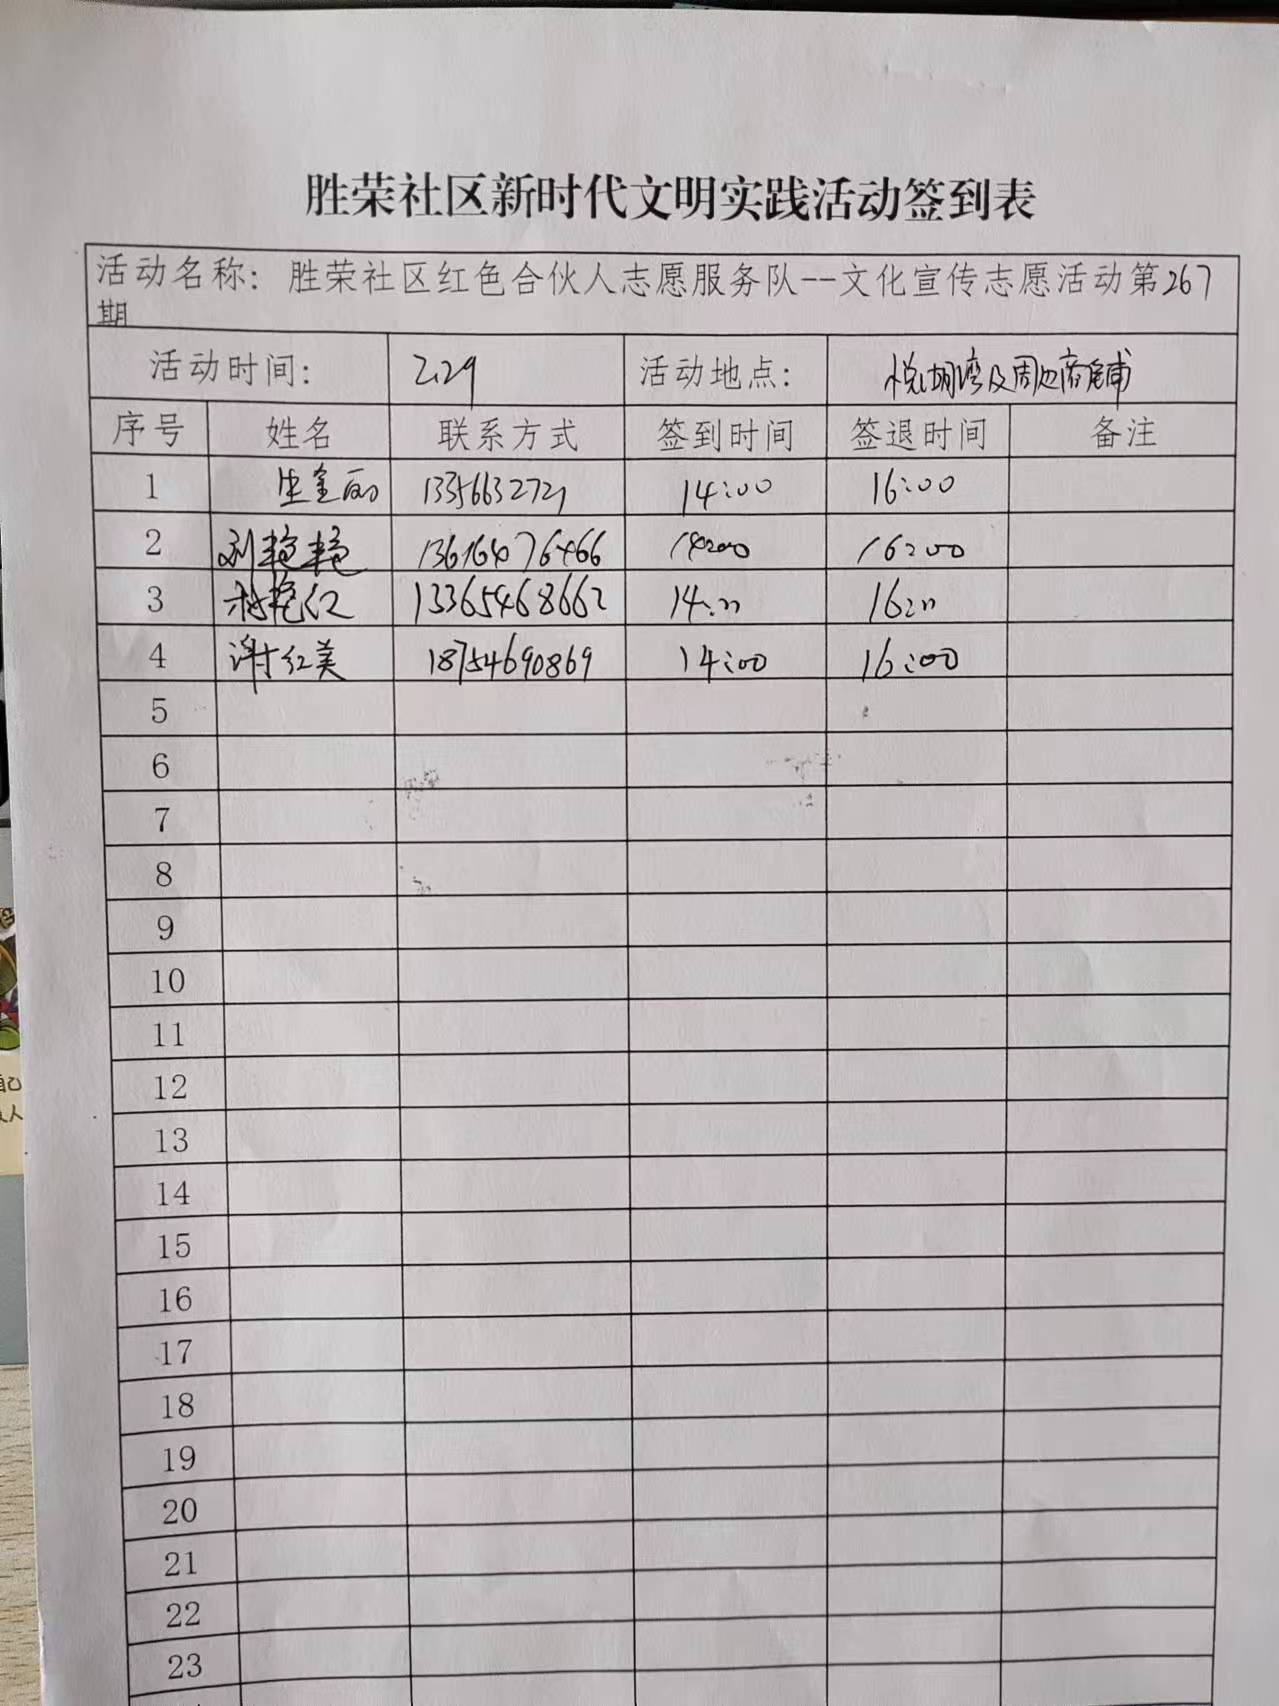 胜荣社区新时代文明实践活动签到表
活动名称：胜荣社区红色合伙人志愿服务队--文化宣传志愿活动第267
期
活动时间： 2.29 活动地点： 悦湖湾及周边商铺
序号 姓名 联系方式 签到时间 签退时间 备注
1 生金丽 13356632721 14:00 16:00
2 刘艳艳 13616476466 14:00 16:00
3 艳红 13365468662 14:00 16:00
4 谢红美 18754690869 14:00 16:00
5
6
7
8
9
10
11
12
13
14
15
16
17
18
19
20
21
22
23